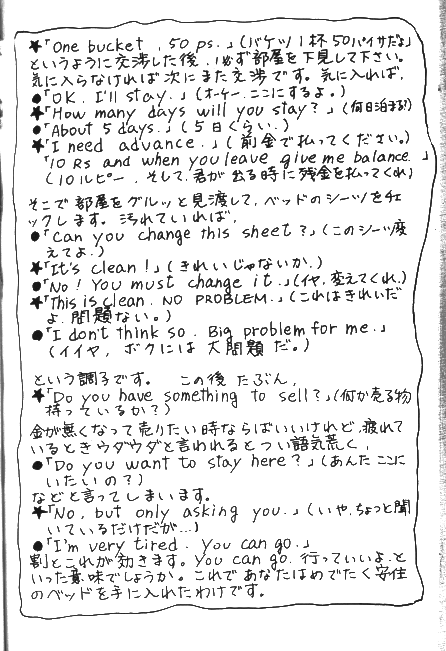 ★「One bucket, 50 ps.」(バケツ1杯50パイサだよ)
というように交渉した後、必ず部屋を下見して下さい。
気に入らなければ次にまた交渉です。気に入れば、
●「OK. I'll stay.」(オーケー、ここにするよ。)
★「How many days will you stay?」(何日泊まる?)
●「About 5 days.」(5日くらい.)
★「I need advance.」(前金で払ってください。)
「10 Rs and when you leave give me balance.」
(10ルピー、そして、君が出る時に残金を払ってくれ)
そこで部屋をグルッと見渡して、ベッドのシーツをチェ
ックします。汚れていれば、
●「Can you change this sheet?」(このシーツ変
えてよ.)
★「It's clean!」(きれいじゃないか.)
●「No! You must change it.」(イヤ、変えてくれ.)
★「This is clean. NO PROBLEM.」(これはきれいだ
よ. 問題ない。)
●「I don't think so. Big problem for me.」
(イイヤ, ボクには大問題だ。)
という調子です。 この後たぶん,
★「Do you have something to sell?」(何か売る物
持っているか?)
金が無くなって売りたい時ならばいいけれど、疲れて
いるときウダウダと言われるとつい語気荒く、
●「Do you want to stay here?」(あんたここに
いたいの?)
などと言ってしまいます。
★「No, but only asking you.」(いや、ちょっと聞
いているだけだが…)
●「I'm very tired. You can go.」
割とこれが効きます。You can go. 行っていいよ、と
いった意味でしょうか。これであなたはめでたく安住
のベッドを手に入れたわけです。